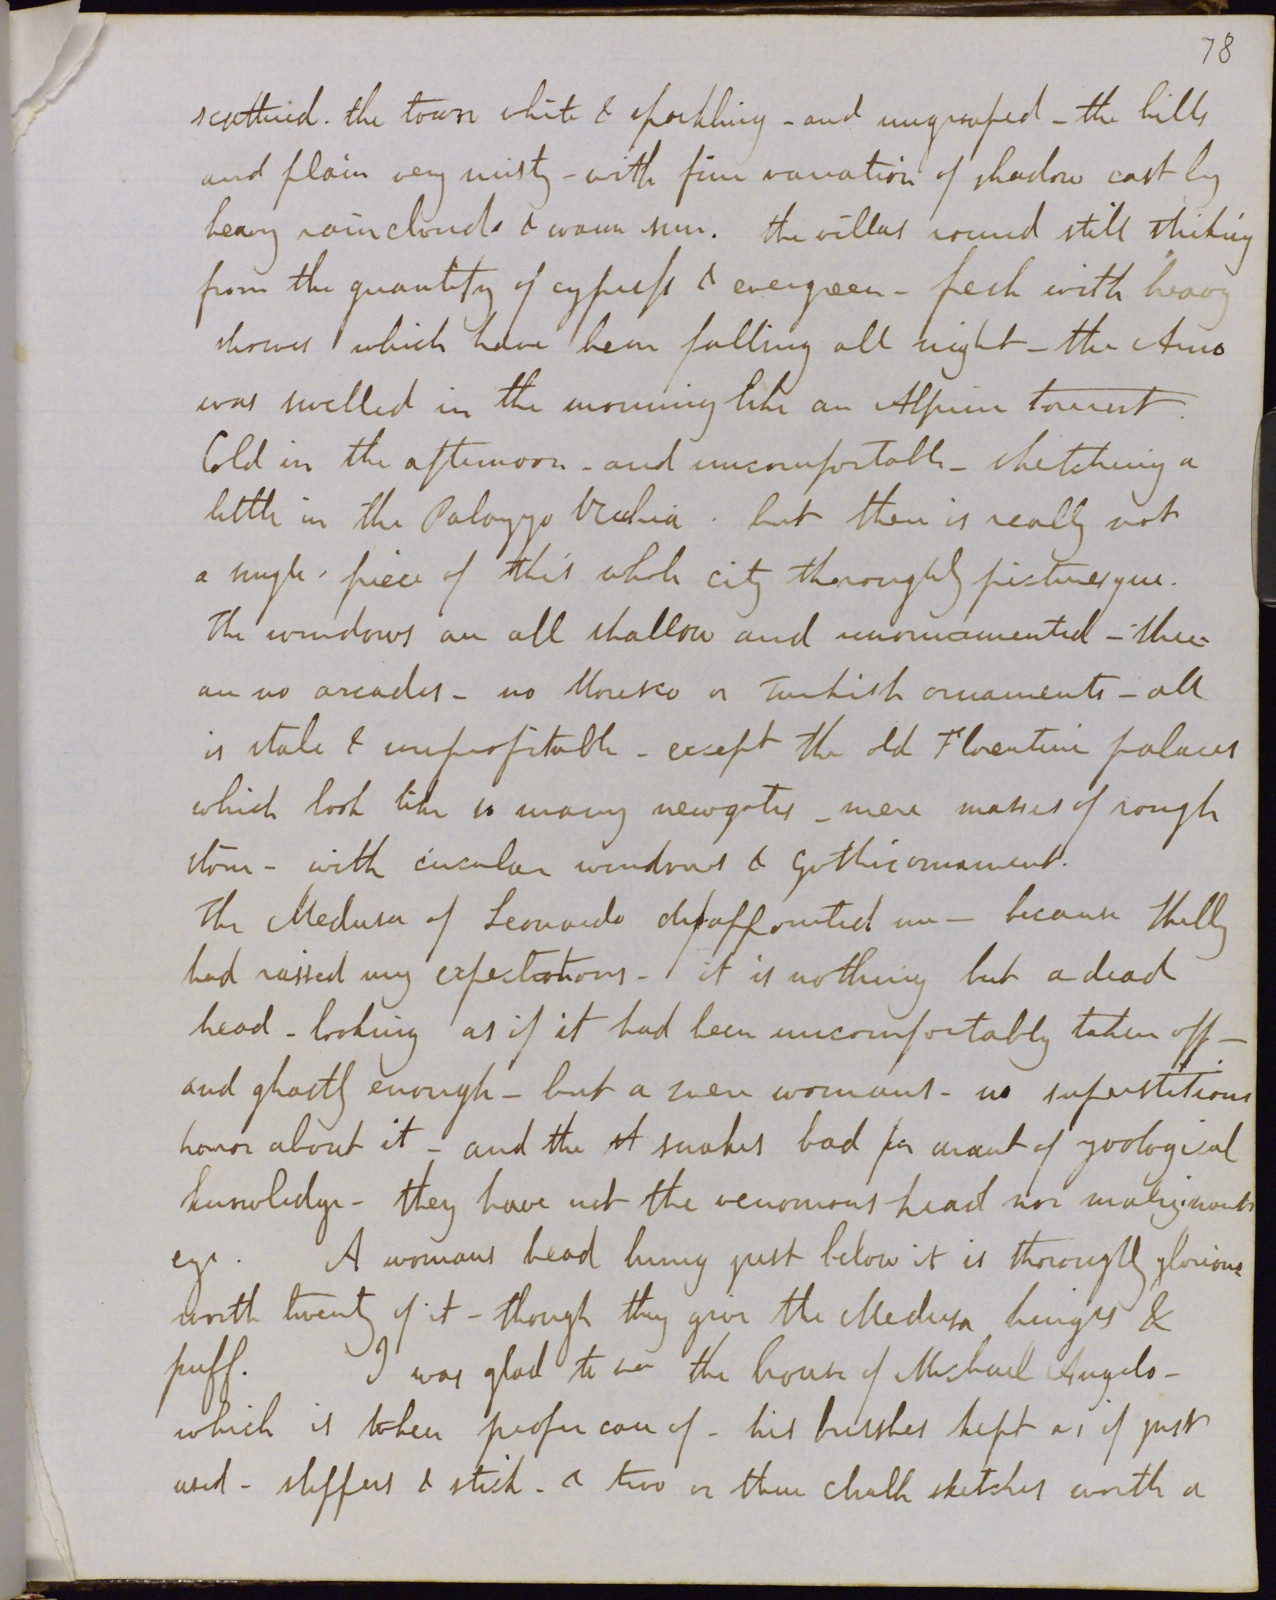 78
scattered. the town white & sparkling - and ungrouped - the hills
and plain very misty - with fine variation of shadow cast by
heavy rainclouds & warm sun. the villas round still striking
from the quantity of cypress & evergreen - fresh with heavy
showers which have been falling all night - the Arno
was swelled in the morning like an Alpine torrent.
Cold in the afternoon - and uncomfortable - sketching a
little in the Palazzo Vecchia. but there is really not
a single piece of this whole city thoroughly picturesque.
The windows are all shallow and unornamented - there
are no arcades - no Moresco or Turkish ornaments - all
is stale & unprofitable - except the old Florentine palaces
which look like so many newgates - mere masses of rough
stone - with circular windows & Gothic ornament.
The Medusa of Leonardo disappointed me - because Shelley
had raised my expectations - it is nothing but a dead
head - looking as if it had been uncomfortably taken off -
and ghastly enough - but a mere womans - no superstitious
horror about it - and the st snakes bad for want of zoological
knowledge - they have not the venomous head nor malignant
eye. A womans head hung just below it is thoroughly glorious
worth twenty of it - though they give the Medusa hinges &
puff. I was glad to see the house of Michael Angelo -
which is taken proper care of - his brushes kept as if just
used - slippers & stick - & two or three chalk sketches worth a